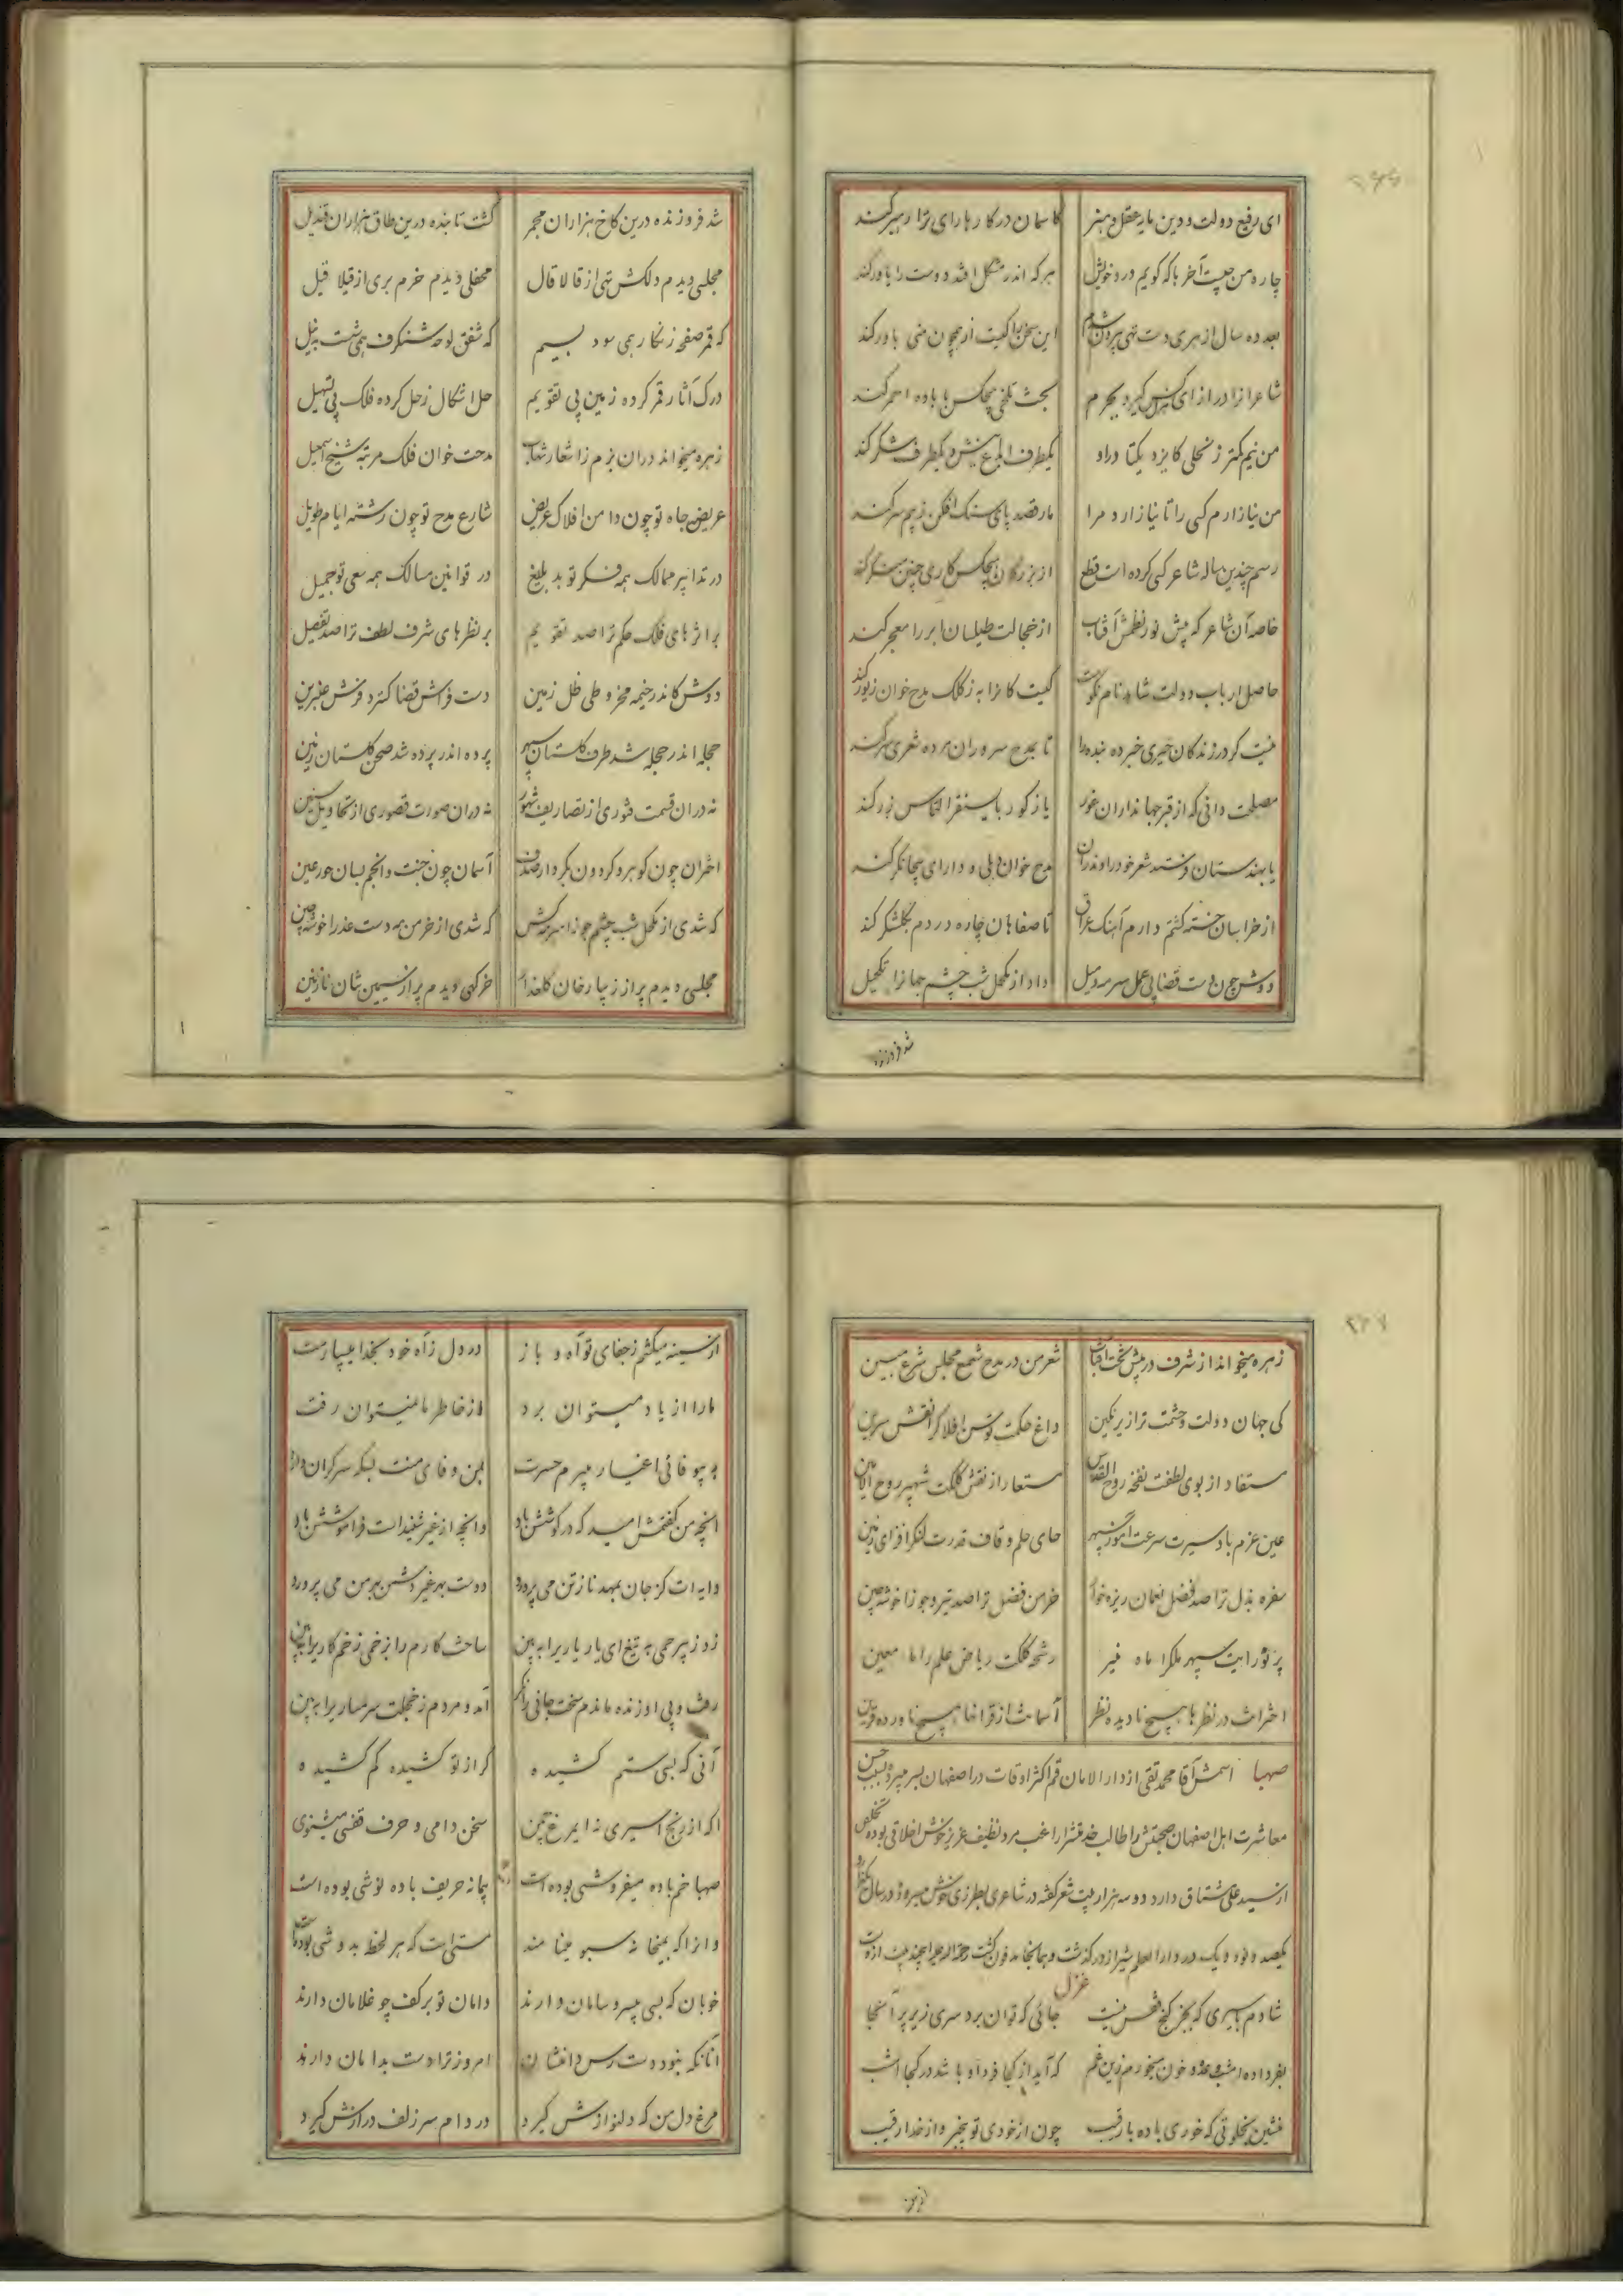 ۲۶۶
ای رفیع دولت و دین مار عقل و هنر کاسمان در کارها رای ترا رهبر کند
چاره من چیست آخر با که گویم درد خویش هر که اندر مشکل افتد دوست را یاور کند
بعد ده سال از هری دست تهی بیرون شدم این سخن را کیست از همچون منی باور کند
شاعرانرا در ازای کس نگیرد بجرم بحث تلخی هیچکس با باده احمر کند
من نیم کمتر ز نحلی کایزد یکتا در او یکطرف نیش و یکطرف شکر کند
من نیازارم کسی را تا نیازارد مرا مار قصد پای سنک افکن سر کند
رسم چندین ساله شاعر کسی کرده است قطع از بزرگان هیچکس کاری چنین کند
خاصه آن شاعر که پیش نور نظمش آفتاب از خجالت طیلسان ابر را معجر کند
حاصل ارباب دولت شاهد نام نکوست کیست کانرا به ز کلک مدح خوان زیور کند
نیست کر در زندکان خیری خبر ده بنده را تا بمدح سروران مرده شعری سر کند
مصلحت دانی که از قبر جهانداران غور یا ز کور بایسنقر التماس زر کند
یا بهندستان فرستد شعر خود را و ندران مدح خوان دهلی و دارای بیجانکر کند
از خراسان خسته کشتم دارم آهنک عراق تا صفاهان چاره دردم بکلشکر کند
دوش چون دست قضا پی عمل سرمه و میل داد از مکحل شب چشم جهانرا تکحیل
شد فروزنده
شد فروزنده درین کاخ هزاران مجمر کشت تابنده درین طاق هزاران قندیل
مجلسی دیدم دلکش تهی از قالا قال محفلی دیدم خرم بری از قیلا قیل
که قمر صفحه زنکار همی سود بسیم که شفق لوحه شنکرف همی شست بنیل
درک آثار قمر کرده زمین پی تقویم حل اشکال زحل کرده فلک پی تسهیل
زهره میخواند دران بزم ز اشعار شهاب مدحت خوان فلک مرتبه شیخ اسمعیل
عریض جاه تو چون دامن افلاک عریض شارع مدح تو چون رشته ایام طویل
در تدابیر ممالک همه فکر تو بدیع بلیغ در قوانین مسالک همه سعی تو جمیل
بر اثرهای فلک حکم ترا صد تقویم بر نظرهای شرف لطف ترا صد تفصیل
دوش کاندر خیمه مخروطی ظل زمین دست فراش قضا کسترد فرش عنبرین
حجله اندر حجله شد طرف کلستان سپهر پرده اندر پرده شد صحن کلستان زمین
نه دران قسمت فتوری از تصاریف شهور نه دران صورت قصوری از تحاویل سنین
اختران چون کوهر و کردون بکردار صدف آسمان چون جنت و انجم بسان حور عین
که شدی از مکحل شب چشم جوزا سرمه کش که شدی از خرمن مه دست عذرا خوشه چین
مجلسی دیدم پر از زیبا رخان کلعذار خرکهی دیدم پر از سیمین تنان نازنین
۲۶۷
زهره میخواند از شرف در پیش تخت آفتاب شعر من در مدح شمع مجلس شرع مبین
کی جهان دولت و حشمت ترا زیر نکین داغ حکمت توسن افلاک را نقش سرین
مستفاد از بوی لطفت نفخه روح القدس مستعار از نقش کلکت شهپر روح الامین
عین عزم باد سیرت سرعت آموز سپهر حای حلم و قاف قدرت لنکر افزای زمین
سفره بذل ترا صد فضل نعمان ریزه خوار خرمن فضل ترا صد تیر و جوزا خوشه چین
پرتو رایت سپهر ملک را ماه منیر رشحه کلکت ریاض علم را ماء معین
اخترانت در نظرها هیچ نادیده نظیر آسمانت از قرانها هیچ ناورده قرین
صهبا اسمش آقا محمد تقی از دار الامان قم اکثر اوقات در اصفهان بسر میبرد بسبب حسن
معاشرت اهل اصفهان صحبتش را طالب خدمتش را راغب مرد نظیف عزیز خوش اخلاقی بوده تخلص
از سید علی مشتاق دارد دو سه هزار بیت شعر کفته در شاعری بطرزی خوش میرود در سال یکهزار و
یکصد و نود و یک در دار العلم شیراز در کذشت و همانجا مدفون کشت رحمة الله علیه این چند بیت ازوست
غزل
شادم باسیری که بجز کنج قفس نیست جائی که توان برد سری زیر پر آنجا
بغیر داده امشب وعده و خون میخورم زین غم که آید از کجا فردا و باشد در کجا امشب
منشین بخلوتی که خوری باده با رقیب چون از خودی تو بیخبر و از خدا رقیب
از سینه
از سینه میکشم ز جفای تو آه و باز در دل ز آه خود بخدا میسپارمت
ما را از یاد میتوان برد از خاطر ما نمیتوان رفت
به بیوفائی اغیار میبرم حسرت بمن وفای منت بسکه سرکران دارد
آنچه من کفتمش امید که در کوشش باد وانچه از غیر شنیدست فراموشش باد
دایه ات کز جان بمهد ناز تن می پرورد دوست بهر غیر و دشمن بهر من می پرورد
زد ز بیرحمی به تیغ ای یار یاریرا ببین ساخت کارم را بزخمی زخم کاریرا ببین
رفت و پی او زنده ماندم سخت جانی را نکر آمد و مردم ز خجلت شرمساریرا ببین
آنی که بسی ستم کشیده کر از تو کشیده کم کشیده
اکه از رنج اسیری نه ایمرغ چمن سخن دامی و حرف قفسی میشنوی
صهبا خم باده میفروشی بوده است پیمانه حریف باده نوشی بوده است
وانرا که بمیخانه سبو مینامند مستیست که هر لحظه بدوشی بوده است
خوبان که بسی بیسر و سامان دارند دامان تو بر کف چو غلامان دارند
آنانکه نبود دست رس دامنشان امروز ترا دست بدامان دارند
مرغ دل من که دلنوازش کیرد در دام سر زلف درازش کیرد